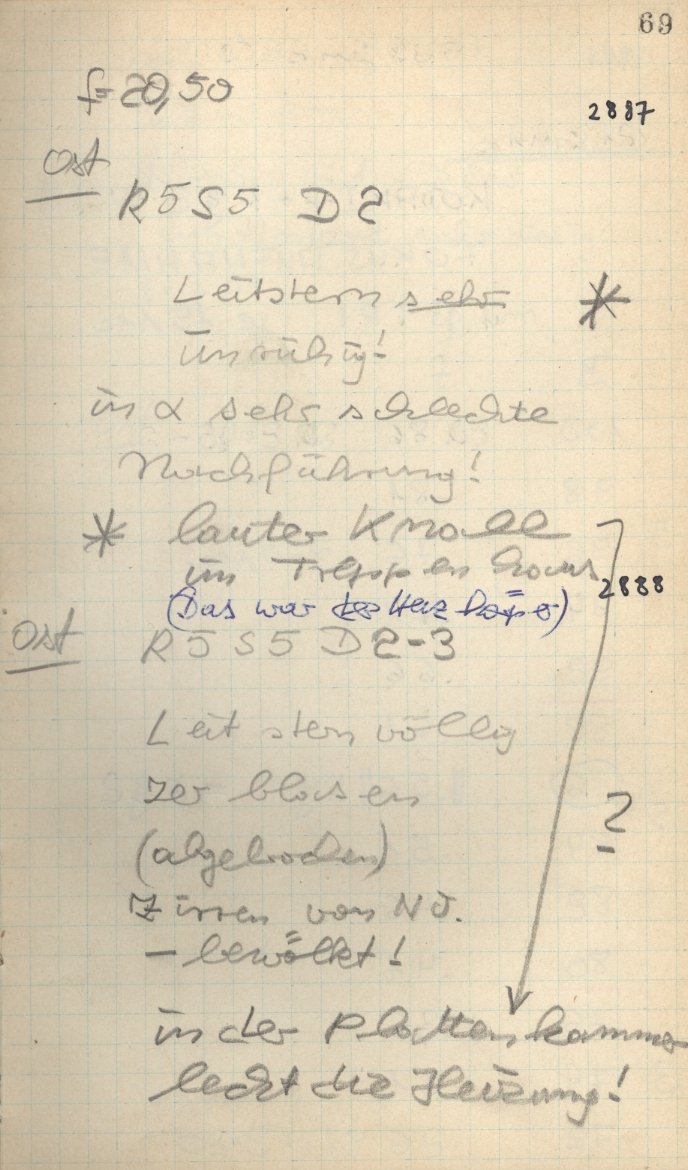 69
f=20,50
2887
Ost
R5 S5 D2
Leitstern sehr *
unruhig!
in α sehr schlechte
Nachführung!
* lauter Knall
im Treppenhaus
2888
(Das war der Heizkö​rper)
Ost R5 S5 D2-3
Leitstern völlig
zerblasen
?
(abgebrochen)
Zirren von NO.
- bewölkt!
in der Plattenkammer
leckt die Heizung!